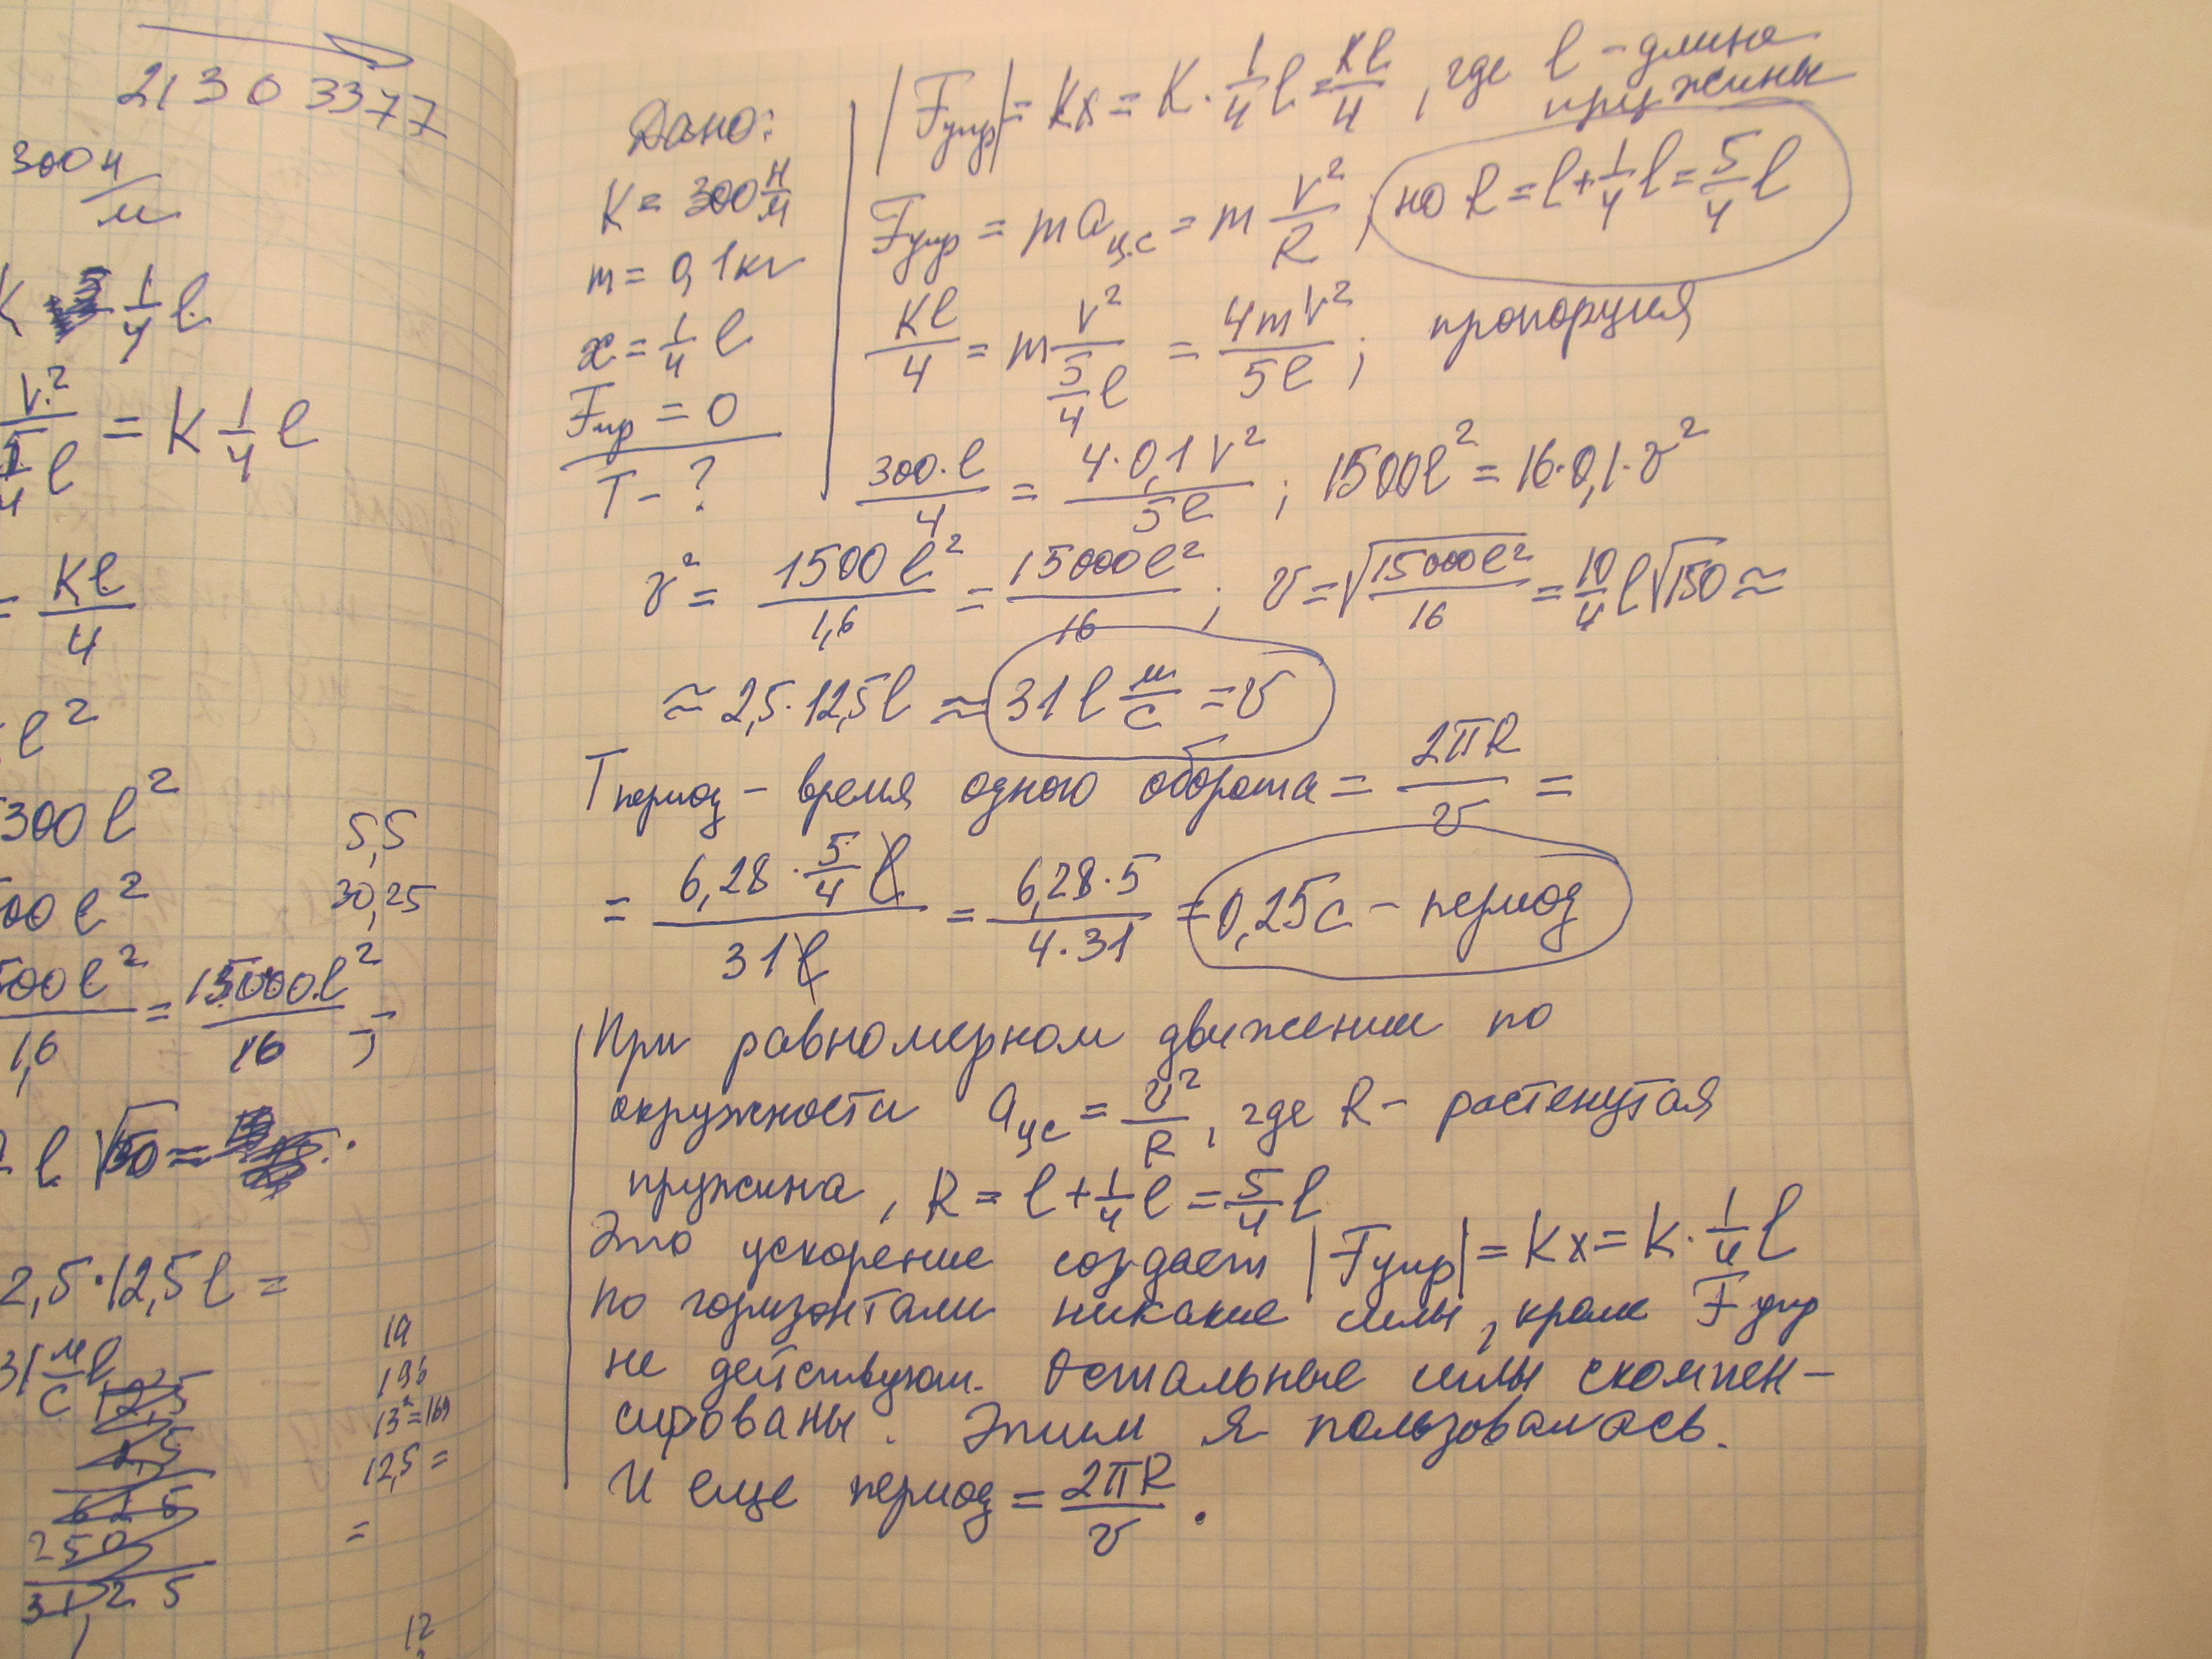 21303377
300 н/м
K 1/4 l
v²/(5/4 l) = K 1/4 l
= Kl/4
l²
300 l²
00 l²
500 l²/1,6 = 15000 l²/16 ;
l √150 ≈
2,5·12,5 l =
31 м/с l
5,5
30,25
19
196
13² = 169
12,5 =
=
12
Дано:
K = 300 Н/М
m = 0,1 кг
x = 1/4 l
Fтр = 0
T - ?
|Fупр| = Kx = K · 1/4 l = Kl/4 , где l - длина
пружины
Fупр = m aц.с = m v²/R ; но R = l + 1/4 l = 5/4 l
Kl/4 = m v²/(5/4 l) = 4mv²/5l ; пропорция
300·l/4 = 4·0,1 v²/5l ; 1500l² = 16·0,1·v²
v² = 1500 l²/1,6 = 15000 l²/16 ; v = √(15000 l²/16) = 10/4 l √150 ≈
≈ 2,5·12,5 l ≈ 31 l м/с = v
Tпериод - время одного оборота = 2πR/v =
= 6,28 · 5/4 l/31 l = 6,28·5/4·31 = 0,25 с - период
При равномерном движении по
окружности aцс = v²/R , где R - растенутая
пружина , R = l + 1/4 l = 5/4 l
Это ускорение создает |Fупр| = Kx = K · 1/4 l
по горизонтали никакие силы, кроме Fупр
не действуют. Остальные силы скомпен-
сированы. Этим я пользовалась.
И еще период = 2πR/v .